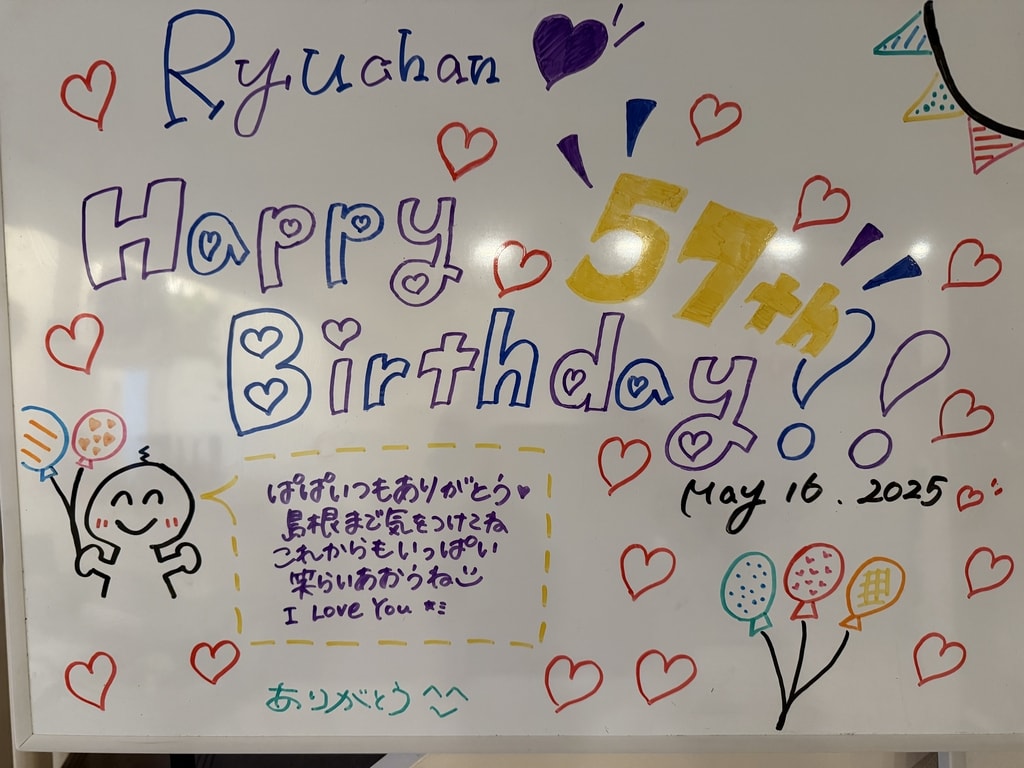 Ryuchan
Happy 57th
Birthday!!
May 16. 2025
ぱぱいつもありがとう♥
島根まで気をつけてね
これからもいっぱい
笑らいあおうね
I Love You
ありがとう ^^